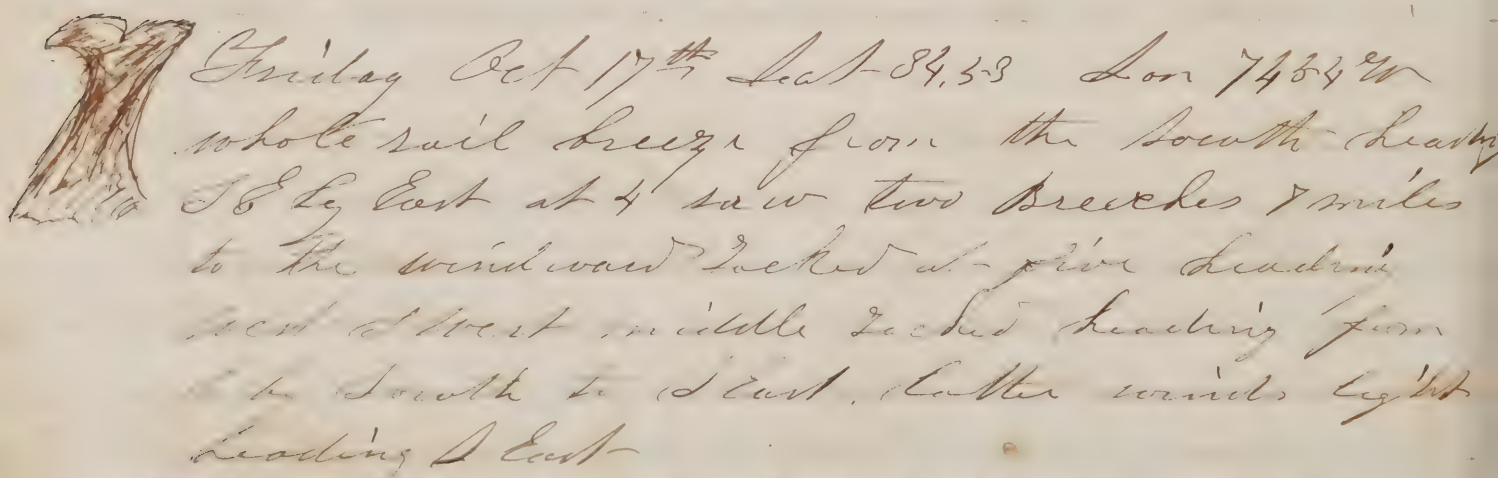 Friday Oct 17th Lat 34,53 Lon 7434 W
whole sail breeze from the South heading
S E by East at 4 saw two Breeches 7 miles
to the windward Tacked at five heading
S West middle Tacked heading from
South to S East. Latter winds light
heading S East